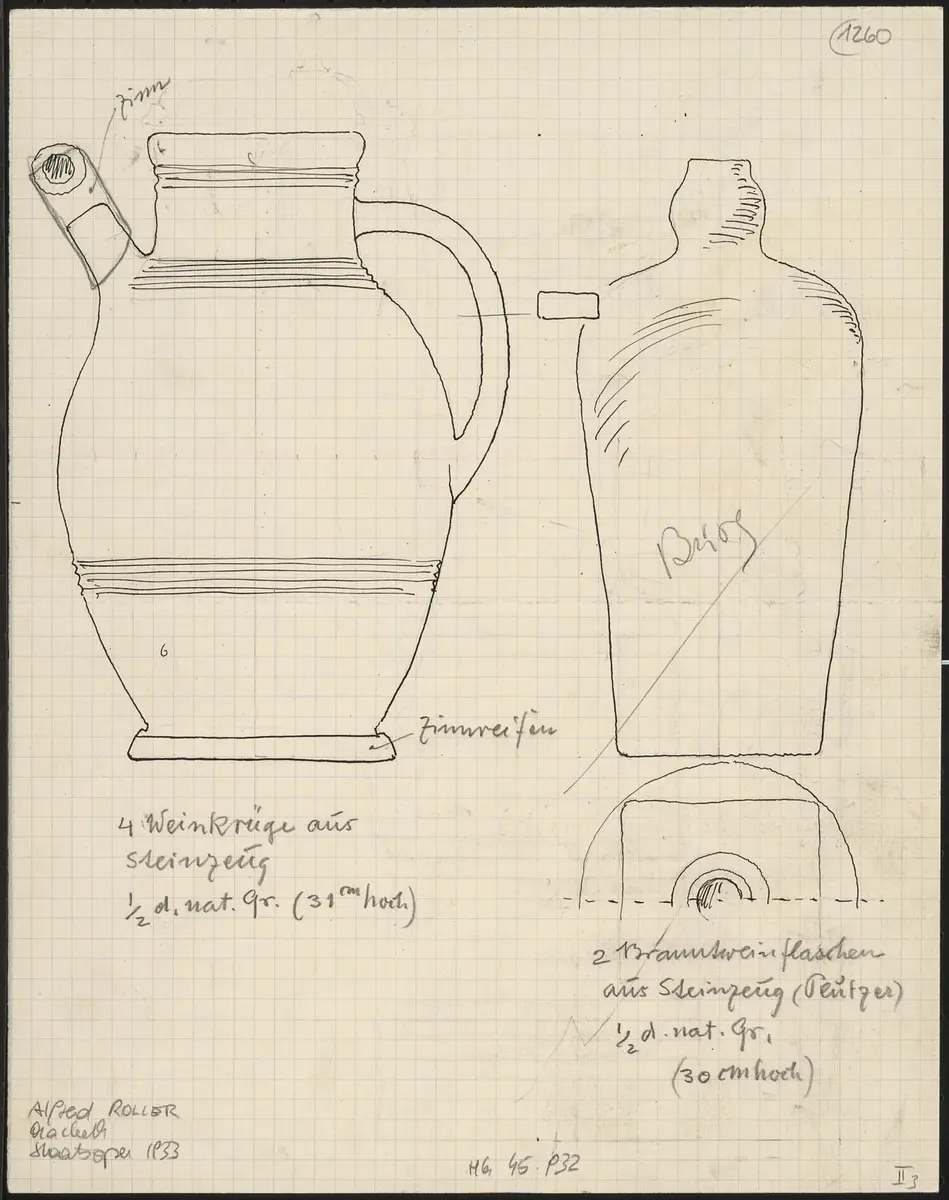 1260
Zinn
Zinnreifen
4 Weinkrüge aus
Steinzeug
1/2 d. nat. Gr. (31 cm hoch)
2 Branntweinflaschen
aus Steinzeug (Plutzer)
1/2 d. nat. Gr.
(30 cm hoch)
Alfred ROLLER
Macbeth
Staatsoper 1933
HG 45.932
II 3